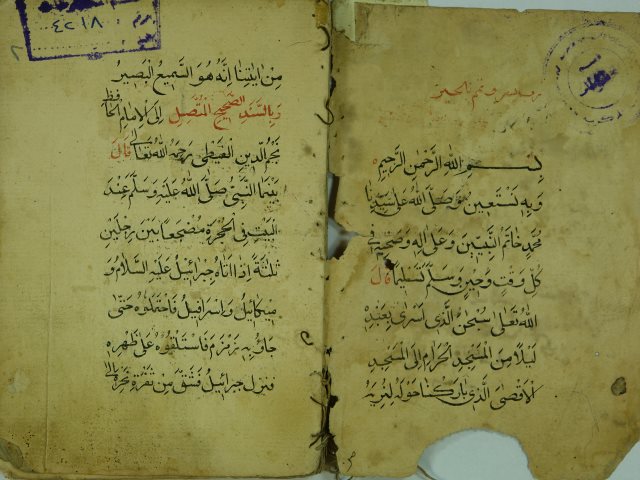 رب يسر وتمم بالخير
بسم الله الرحمن الرحيم
وبه نستعين وصلى الله على سيدنا
محمد خاتم النبيين وعلى اله وصحبه في
كل وقت وحين وسلم تسليما قال
الله تعالى سبحن الذي اسرى بعبده
ليلا من المسجد الحرام الى المسجد
الاقصى الذي باركنا حوله لنريه
٤٢١٨
من اياتنا انه هو السميع البصير
وبالسند الصحيح المتصل الى الامام الحافظ
نجم الدين الغيطي رحمه الله تعالى قال
بينما النبي صلى الله عليه وسلم عند
البيت في الحجرة مضجعا بين رجلين
ثلثة اذا اتاه جبرائيل عليه السلام و
ميكائيل واسرافيل فاحتملوه حتى
جاؤ به زمزم فاستلقوه على ظهره
فنزل جبرائيل فشق من نقرة نحره الى